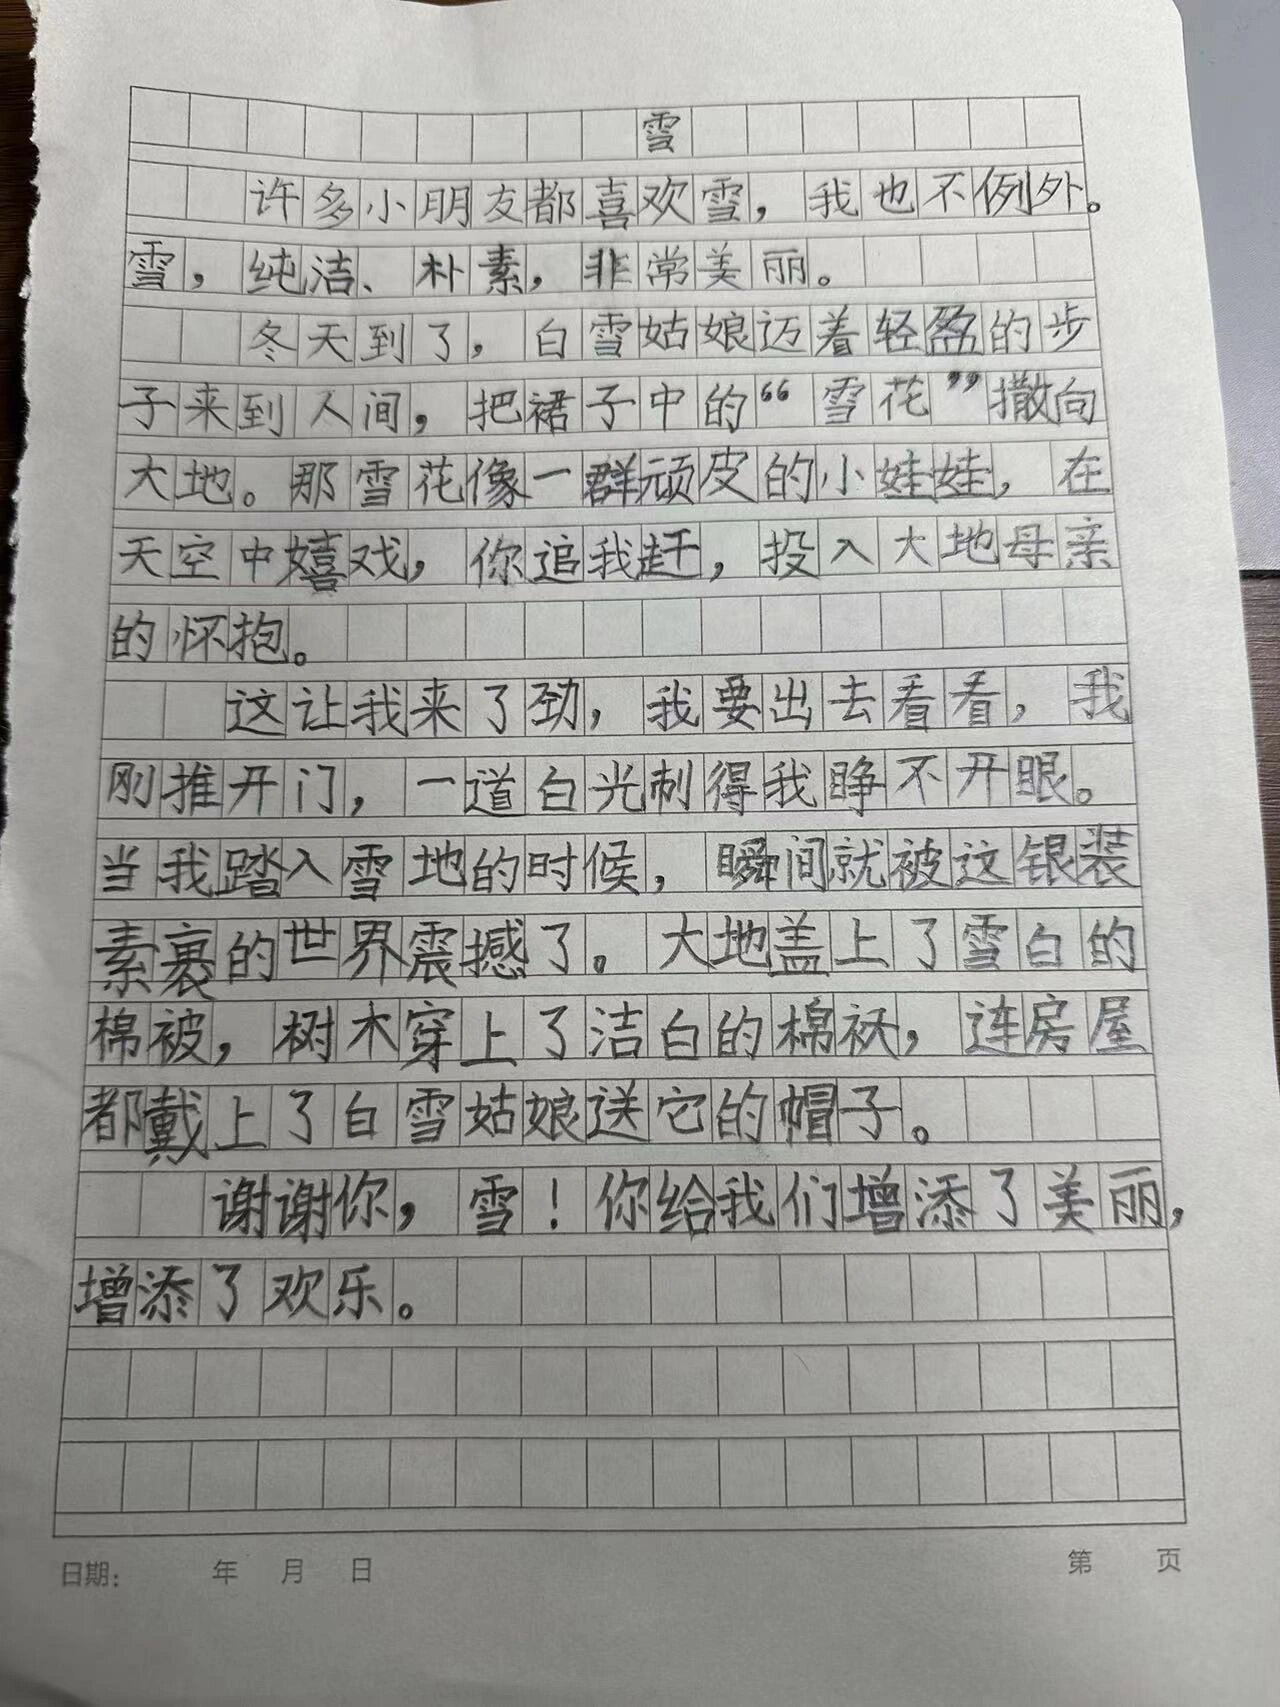 雪
许多小朋友都喜欢雪，我也不例外。
雪，纯洁、朴素，非常美丽。
冬天到了，白雪姑娘迈着轻盈的步
子来到人间，把裙子中的“雪花”撒向
大地。那雪花像一群顽皮的小娃娃，在
天空中嬉戏，你追我赶，投入大地母亲
的怀抱。
这让我来了劲，我要出去看看，我
刚推开门，一道白光刺得我睁不开眼。
当我踏入雪地的时候，瞬间就被这银装
素裹的世界震撼了。大地盖上了雪白的
棉被，树木穿上了洁白的棉袄，连房屋
都戴上了白雪姑娘送它的帽子。
谢谢你，雪！你给我们增添了美丽，
增添了欢乐。
日期： 年 月 日 第 页